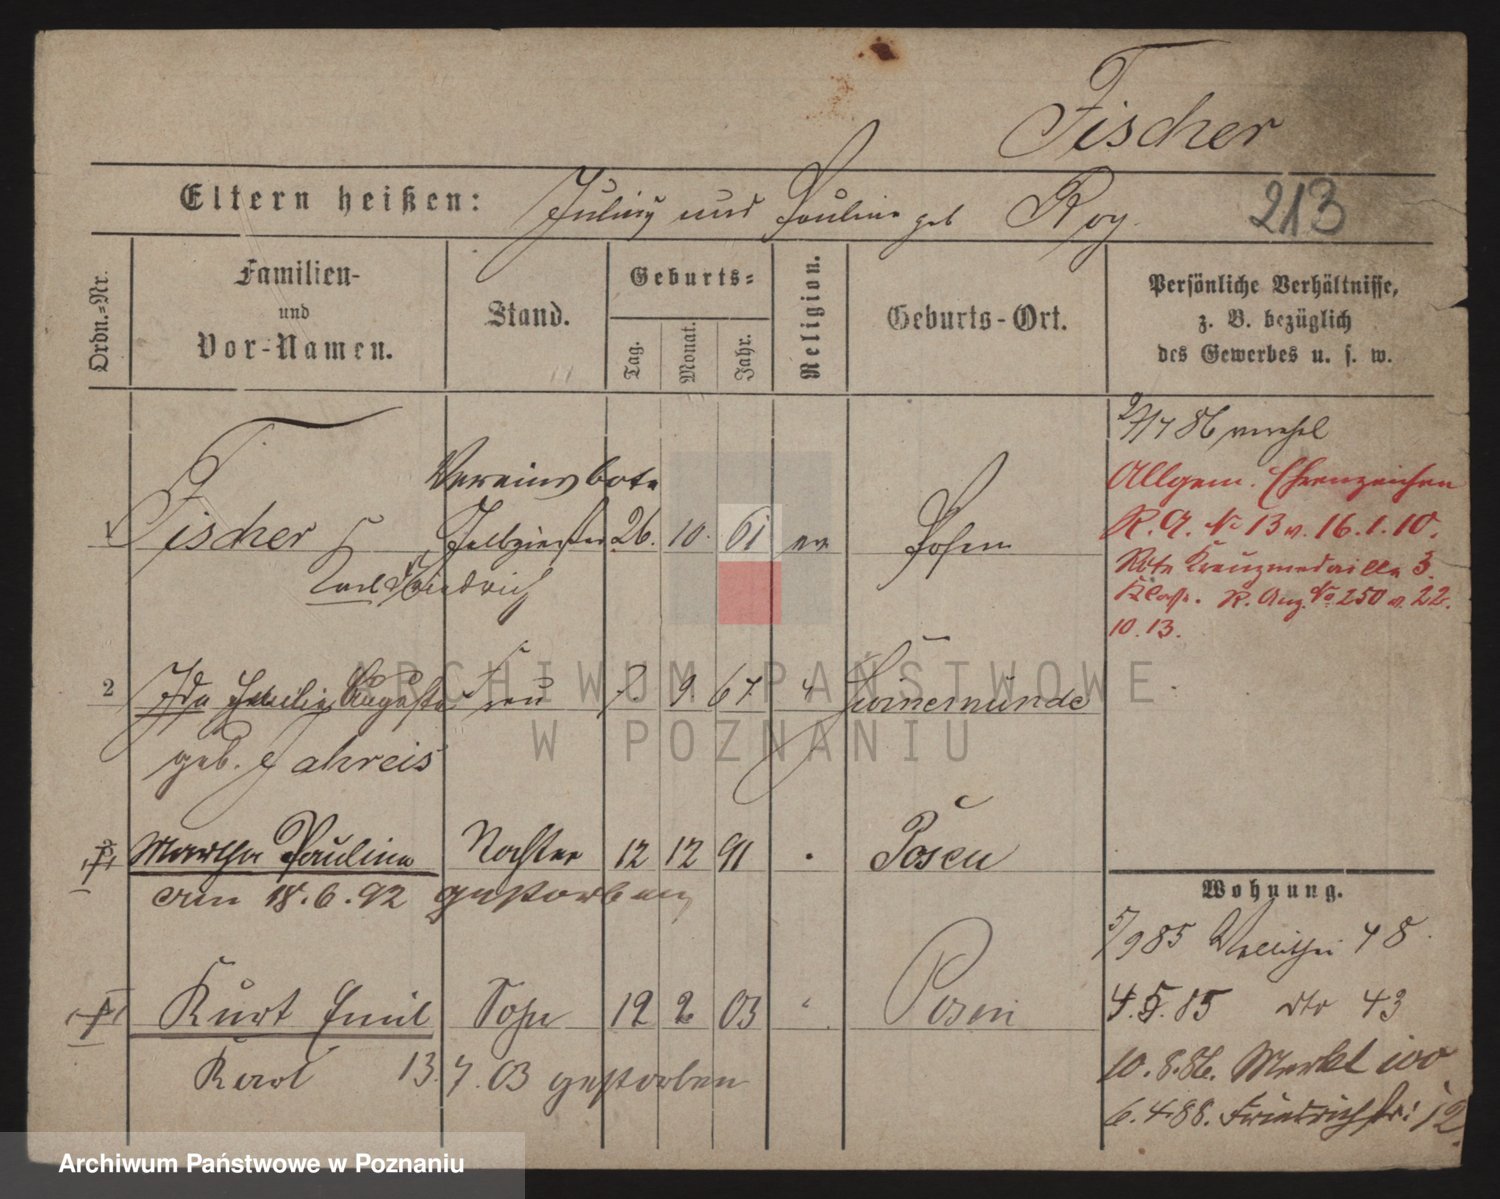 Fischer
Eltern heißen: Julius und Pauline geb Roy.
213
Ordn.-Nr.
Familien-
und
Vor-Namen.
Stand.
Geburts-
Tag.
Monat.
Jahr.
Religion.
Geburts-Ort.
Persönliche Verhältnisse,
z. B. bezüglich
des Gewerbes u. s. w.
Vereinsbote
1 Fischer 26. 10. 61 ev Posen
Karl Friedrich
86
Allgem. Ehrenzeichen
R. A. No 13 v. 16.1.10.
Rote Kreuzmedaille 3.
Klasse. R. Anz. No 250 v. 22.
10.13.
2 Ida Emilie Auguste Frau 7. 9 67 " Swinemünde
geb. Jahreis
3 Martha Pauline Tochter 12 12 91 " Posen
am 18.6.92 gestorben
Kurt Emil Sohn 12 2 03 " Posen
Karl 13.7.03 gestorben
Wohnung.
5/9 85 Wallischei 48
4.5.85 dto 43
10.8.86. Markt 100
6.4.88. Friedrichstr: 12.
ARCHIWUM PAŃSTWOWE
W POZNANIU
Archiwum Państwowe w Poznaniu